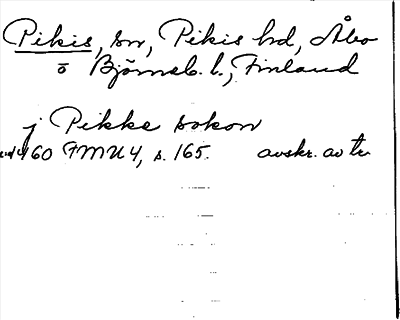 Pikis, sn, Pikis hd, Åbo
o Björneb. l., Finland
j Pikke sokon
1460 FMU 4, s. 165. avskr. av tr.